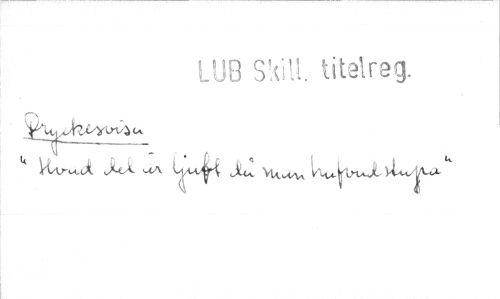 LUB Skill. titelreg.
Dryckesvisa
"Hvad det är ljuft då man hufvudstupa"